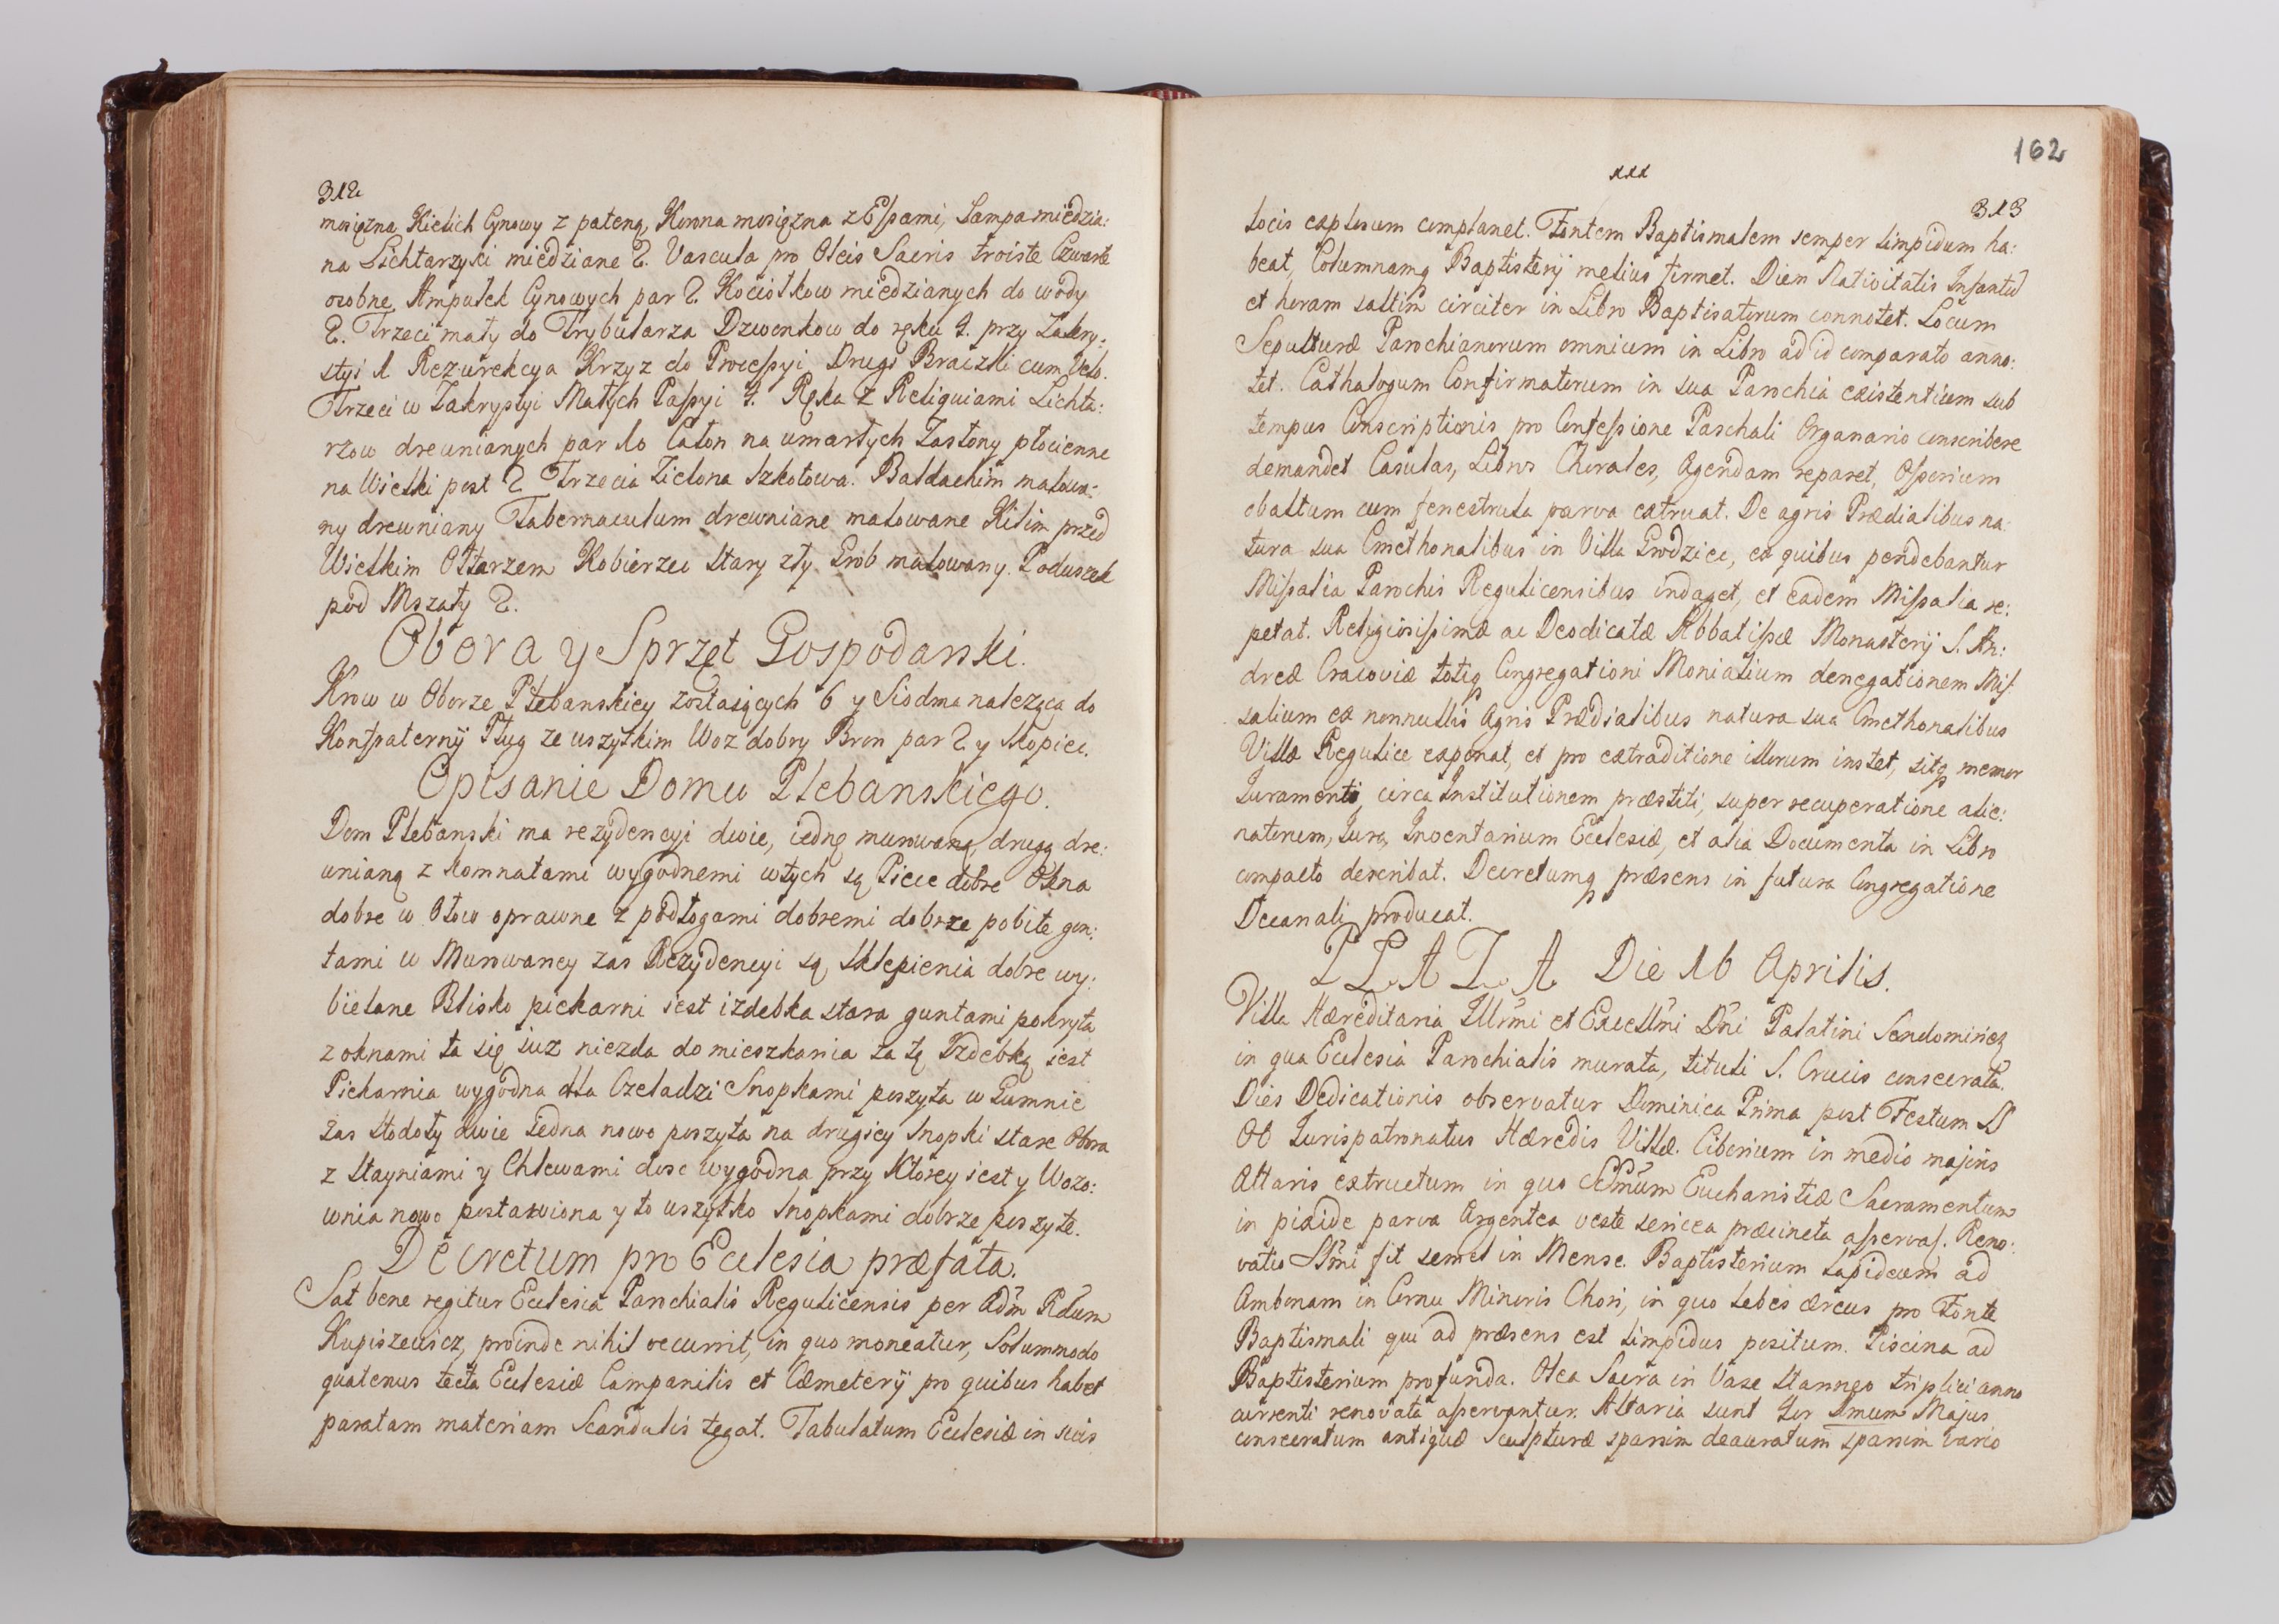 312
mosiężna, Kielich Cynowy z pateną, Korona mosiężna z Eſsami, Lampa miedzia:
na Lichtarzyki miedziane 2. Vascula pro Oleis Sacris troiste Czwarte
osobne, Ampułek Cynowych par 2. Kociołkow miedzianych do wody
2. Trzeci mały do Trybularza Dzwonkow do ręku 4. przy Zakry:
styi 1. Rezurekcya Krzyz do Proceſsyi, Drugi Braizki cum Velo.
Trzeci w Zakrystyi Małych Paſsyi 4. Ręka z Reliquiami Lichta:
rzow drewnianych par 10 Całon na umarłych Zasłony płocienne
na Wielki post 2 Trzecia Zielona Szkotowa. Baldachim malowa:
ny drewniany Tabernaculum drewniane malowane Kilim przed
Wielkim Ołtarzem Kobierzec stary zły Grob malowany. Poduszek
pod Mszały 2.
Obora y Sprzęt Gospodarski.
Krow w Oborze Plebanskiey zostaiących 6 y Siodma nalezącą do
Konfraternij Pług ze wszytkim Woz dobry Bron par 2 y Skopiec.
Opisanie Domu Plebanskiego.
Dom Plebanski ma rezydencyi dwie, iednę murowaną, drugą dre:
wnianą z Komnatami wygodnemi w tych są, Piece dobre Okna
dobre w Ołow oprawne z podłogami dobremi dobrze pobite gon:
tami w Murowaney zas Rezydencyi są, sklepienia dobre wy:
bielane Blisko piekarni iest izdebka stara guntami pokryta
z oknami ta się iuz niezda do mieszkania za tę Izdebką iest
Piekarnia wygodna dla Czeladzi Snopkami poszyta w Gumnie
zas stodoły dwie iedna nowo poszyta na drugiey Snopki stare Obora
z Stayniami y Chlewami dosc wygodna przy Ktorey iest y Wozo:
wnia nowo postawiona y to wszytko Snopkami dobrze poszyte.
Decretum pro Ecclesia præfata.
Sat bene regitur Ecclesia Parochialis Regulicensis per Adm Rdum
Kupiszewicz, proinde nihil occurrit, in quo moneatur, Solummodo
quatenus tecta Ecclesiæ Campanilis et Cæmeterij pro quibus habet
paratam materiam Scandulis tegat. Tabulatum Ecclesiæ in suis
162
313
locis explosum complanet. Fontem Baptismalem semper limpidum ha:
beat, Columnamq Baptisterij melius firmet. Diem Nativitatis Infantũ
et horam saltim circiter in Libro Baptisatorum connotet. Locum
Sepulturæ Parochianorum omnium in Libro ad id comparato anno:
tet. Cathalogum Confirmatorum in sua Parochia existentium sub
tempus Conscriptionis pro Confeſsione Paschali Organario conscribere
demandet Casulas, Libros Chorales, Agendam reparet, Oſsorium
obaltum cum fenestrula parva extruat. De agris Prædialibus na:
tura sua Cmethonalibus in Villa Grodziec, ex quibus pendebantur
Miſsalia Parochis Regulicensibus indaget, et eadem Miſsalia re:
petat. Religiosiſsimæ ac Deodicatæ Abbatiſsæ Monasterij S. An:
dreæ Cracoviæ totiq Congregationi Monialium denegationem Miſ:
salium ex nonnullis Agris Prædialibus natura sua Cmethonalibus
Villæ Regulice exponat, et pro extraditione illorum instet, sitq memor
Juramenti, circa Institutionem præstiti, super recuperatione alie:
natorum, Jura, Inventarium Ecclesiæ, et alia Documenta in Libro
compacto describat. Decretumq præsens in futura Congregatione
Decanali producat.
PŁAZA Die 16 Aprilis.
Villa Hæreditaria Illrmi et Excellmi Dni Palatini Sendomirien
in qua Ecclesia Parochialis murata, tituli S. Crucis consecrata.
Dies Dedicationis observatur Dominica Prima post Festum SS
OO Jurispatronatus Hæredis Villæ. Ciborium in medio majoris
Altaris extructum in quo SSmum Eucharistiæ Sacramentum
in pixide parva Argentea veste sericea præcincta aſservaſ. Reno:
vatio SSmi fit semel in Mense. Baptisterium lapideum ad
Ambonam in Cornu Minoris Chori, in quo lebes æreus pro Fonte
Baptismali qui ad præsens est limpidus positum. Piscina ad
Baptisterium profunda. Olea Sacra in Vase stanneo triplici anno
currenti renovata aſservantur. Altaria sunt 1mum Majus
consecratum antiquæ Sculpturæ sparsim deauratum sparsim vario